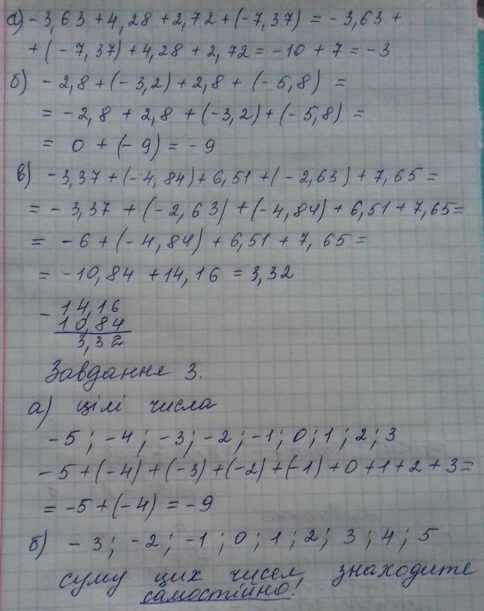 а) -3,63+4,28+2,72+(-7,37) = -3,63+
+(-7,37)+4,28+2,72=-10+7=-3
б) -2,8+(-3,2)+2,8+(-5,8) =
= -2,8+2,8+(-3,2)+(-5,8) =
= 0+(-9)=-9
в) -3,37+(-4,84)+6,51+(-2,63)+7,65=
= -3,37+(-2,63)+(-4,84)+6,51+7,65=
= -6+(-4,84)+6,51+7,65=
= -10,84+14,16=3,32
- 14,16
10,84
3,32
Завдання 3.
а) цілі числа
-5; -4; -3; -2; -1; 0; 1; 2; 3
-5+(-4)+(-3)+(-2)+(-1)+0+1+2+3=
= -5+(-4)=-9
б) -3; -2; -1; 0; 1; 2; 3; 4; 5
суму цих чисел, знаходите
самостійно!